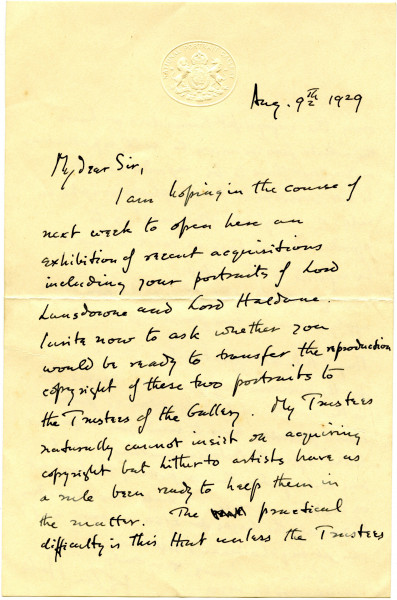 Aug. 9th 1929
My dear Sir,
I am hoping in the course of
next week to open here an
exhibition of recent acquisitions
including your portraits of Lord
Lansdowne and Lord Haldane.
I write now to ask whether you
would be ready to transfer the reproduction
copyright of these two portraits to
the Trustees of the Gallery. My Trustees
naturally cannot insist on acquiring
copyright but hitherto artists have as
a rule been ready to help them in
the matter. The practical
difficulty is this that unless the Trustees